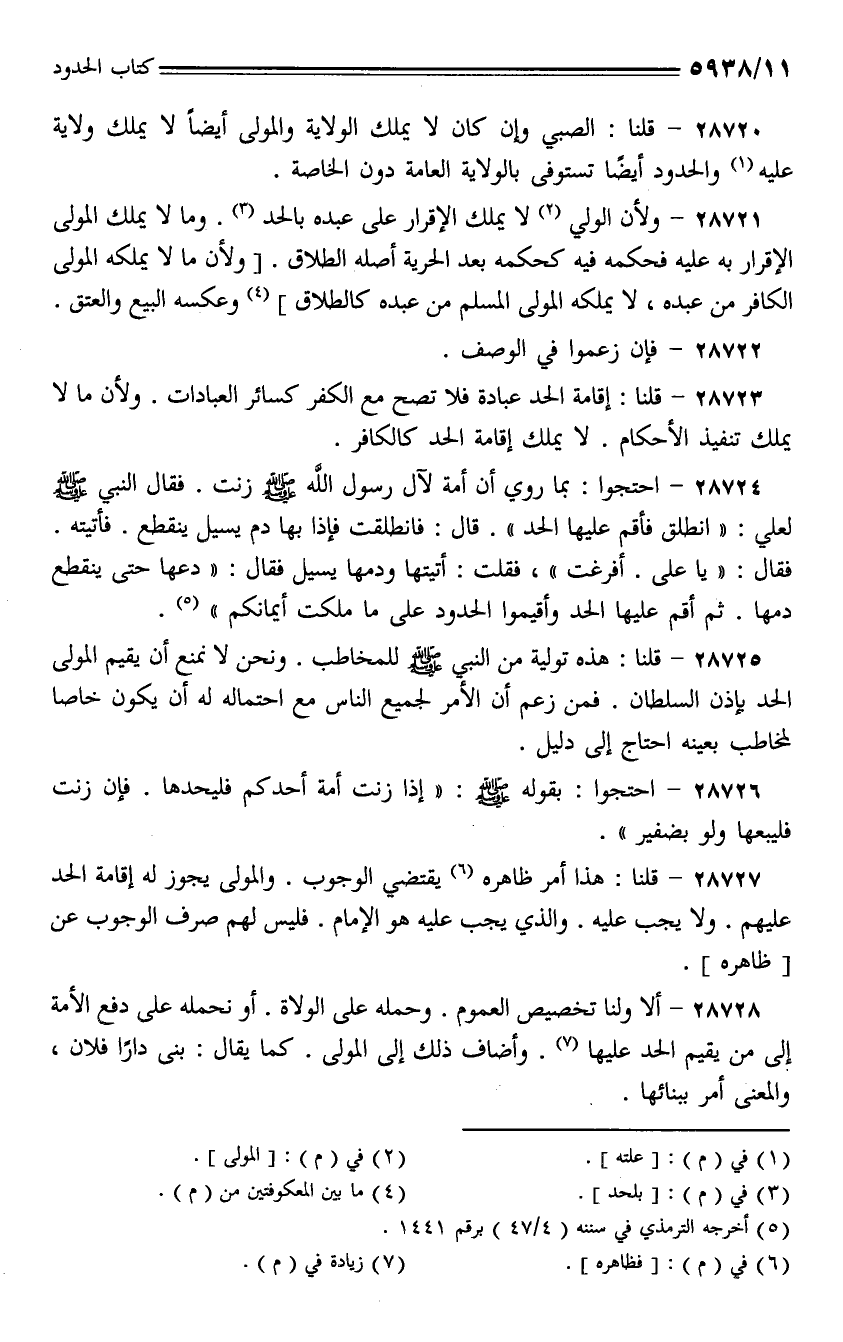 ٥٩٣٨/١١ كتاب الحدود
٢٨٧٢٠ – قلنا : الصبي وإن كان لا يملك الولاية والمولى أيضاً لا يملك ولاية
عليه (١) والحدود أيضًا تستوفى بالولاية العامة دون الخاصة .
٢٨٧٢١ – ولأن الولي (٢) لا يملك الإقرار على عبده بالحد (٣) . وما لا يملك المولى
الإقرار به عليه فحكمه فيه كحكمه بعد الحرية أصله الطلاق . [ ولأن ما لا يملكه المولى
الكافر من عبده ، لا يملكه المولى المسلم من عبده كالطلاق ] (٤) وعكسه البيع والعتق .
٢٨٧٢٢ – فإن زعموا في الوصف .
٢٨٧٢٣ – قلنا : إقامة الحد عبادة فلا تصح مع الكفر كسائر العبادات . ولأن ما لا
يملك تنفيذ الأحكام . لا يملك إقامة الحد كالكافر .
٢٨٧٢٤ – احتجوا : بما روي أن أمة لآل رسول اللَّه ﷺ زنت . فقال النبي ﷺ
لعلي : « انطلق فأقم عليها الحد » . قال : فانطلقت فإذا بها دم يسيل ينقطع . فأتيته .
فقال : « يا على . أفرغت » ، فقلت : أتيتها ودمها يسيل فقال : « دعها حتى ينقطع
دمها . ثم أقم عليها الحد وأقيموا الحدود على ما ملكت أيمانكم » (٥) .
٢٨٧٢٥ – قلنا : هذه تولية من النبي ﷺ للمخاطب . ونحن لا نمنع أن يقيم المولى
الحد بإذن السلطان . فمن زعم أن الأمر لجميع الناس مع احتماله له أن يكون خاصا
لمخاطب بعينه احتاج إلى دليل .
٢٨٧٢٦ – احتجوا : بقوله ﷺ : « إذا زنت أمة أحدكم فليحدها . فإن زنت
فليبعها ولو بضفير » .
٢٨٧٢٧ – قلنا : هذا أمر ظاهره (٦) يقتضي الوجوب . والمولى يجوز له إقامة الحد
عليهم . ولا يجب عليه . والذي يجب عليه هو الإمام . فليس لهم صرف الوجوب عن
[ ظاهره ] .
٢٨٧٢٨ – ألا ولنا تخصيص العموم . وحمله على الولاة . أو نحمله على دفع الأمة
إلى من يقيم الحد عليها (٧) . وأضاف ذلك إلى المولى . كما يقال : بنى دارًا فلان ،
والمعنى أمر ببنائها .
(١) في ( م ) : [ علته ] . (٢) في ( م ) : [ المولى ] .
(٣) في ( م ) : [ بلحد ] . (٤) ما بين المعكوفتين من ( م ) .
(٥) أخرجه الترمذي في سننه ( ٤٧/٤ ) برقم ١٤٤١ .
(٦) في ( م ) : [ فظاهره ] . (٧) زيادة في ( م ) .